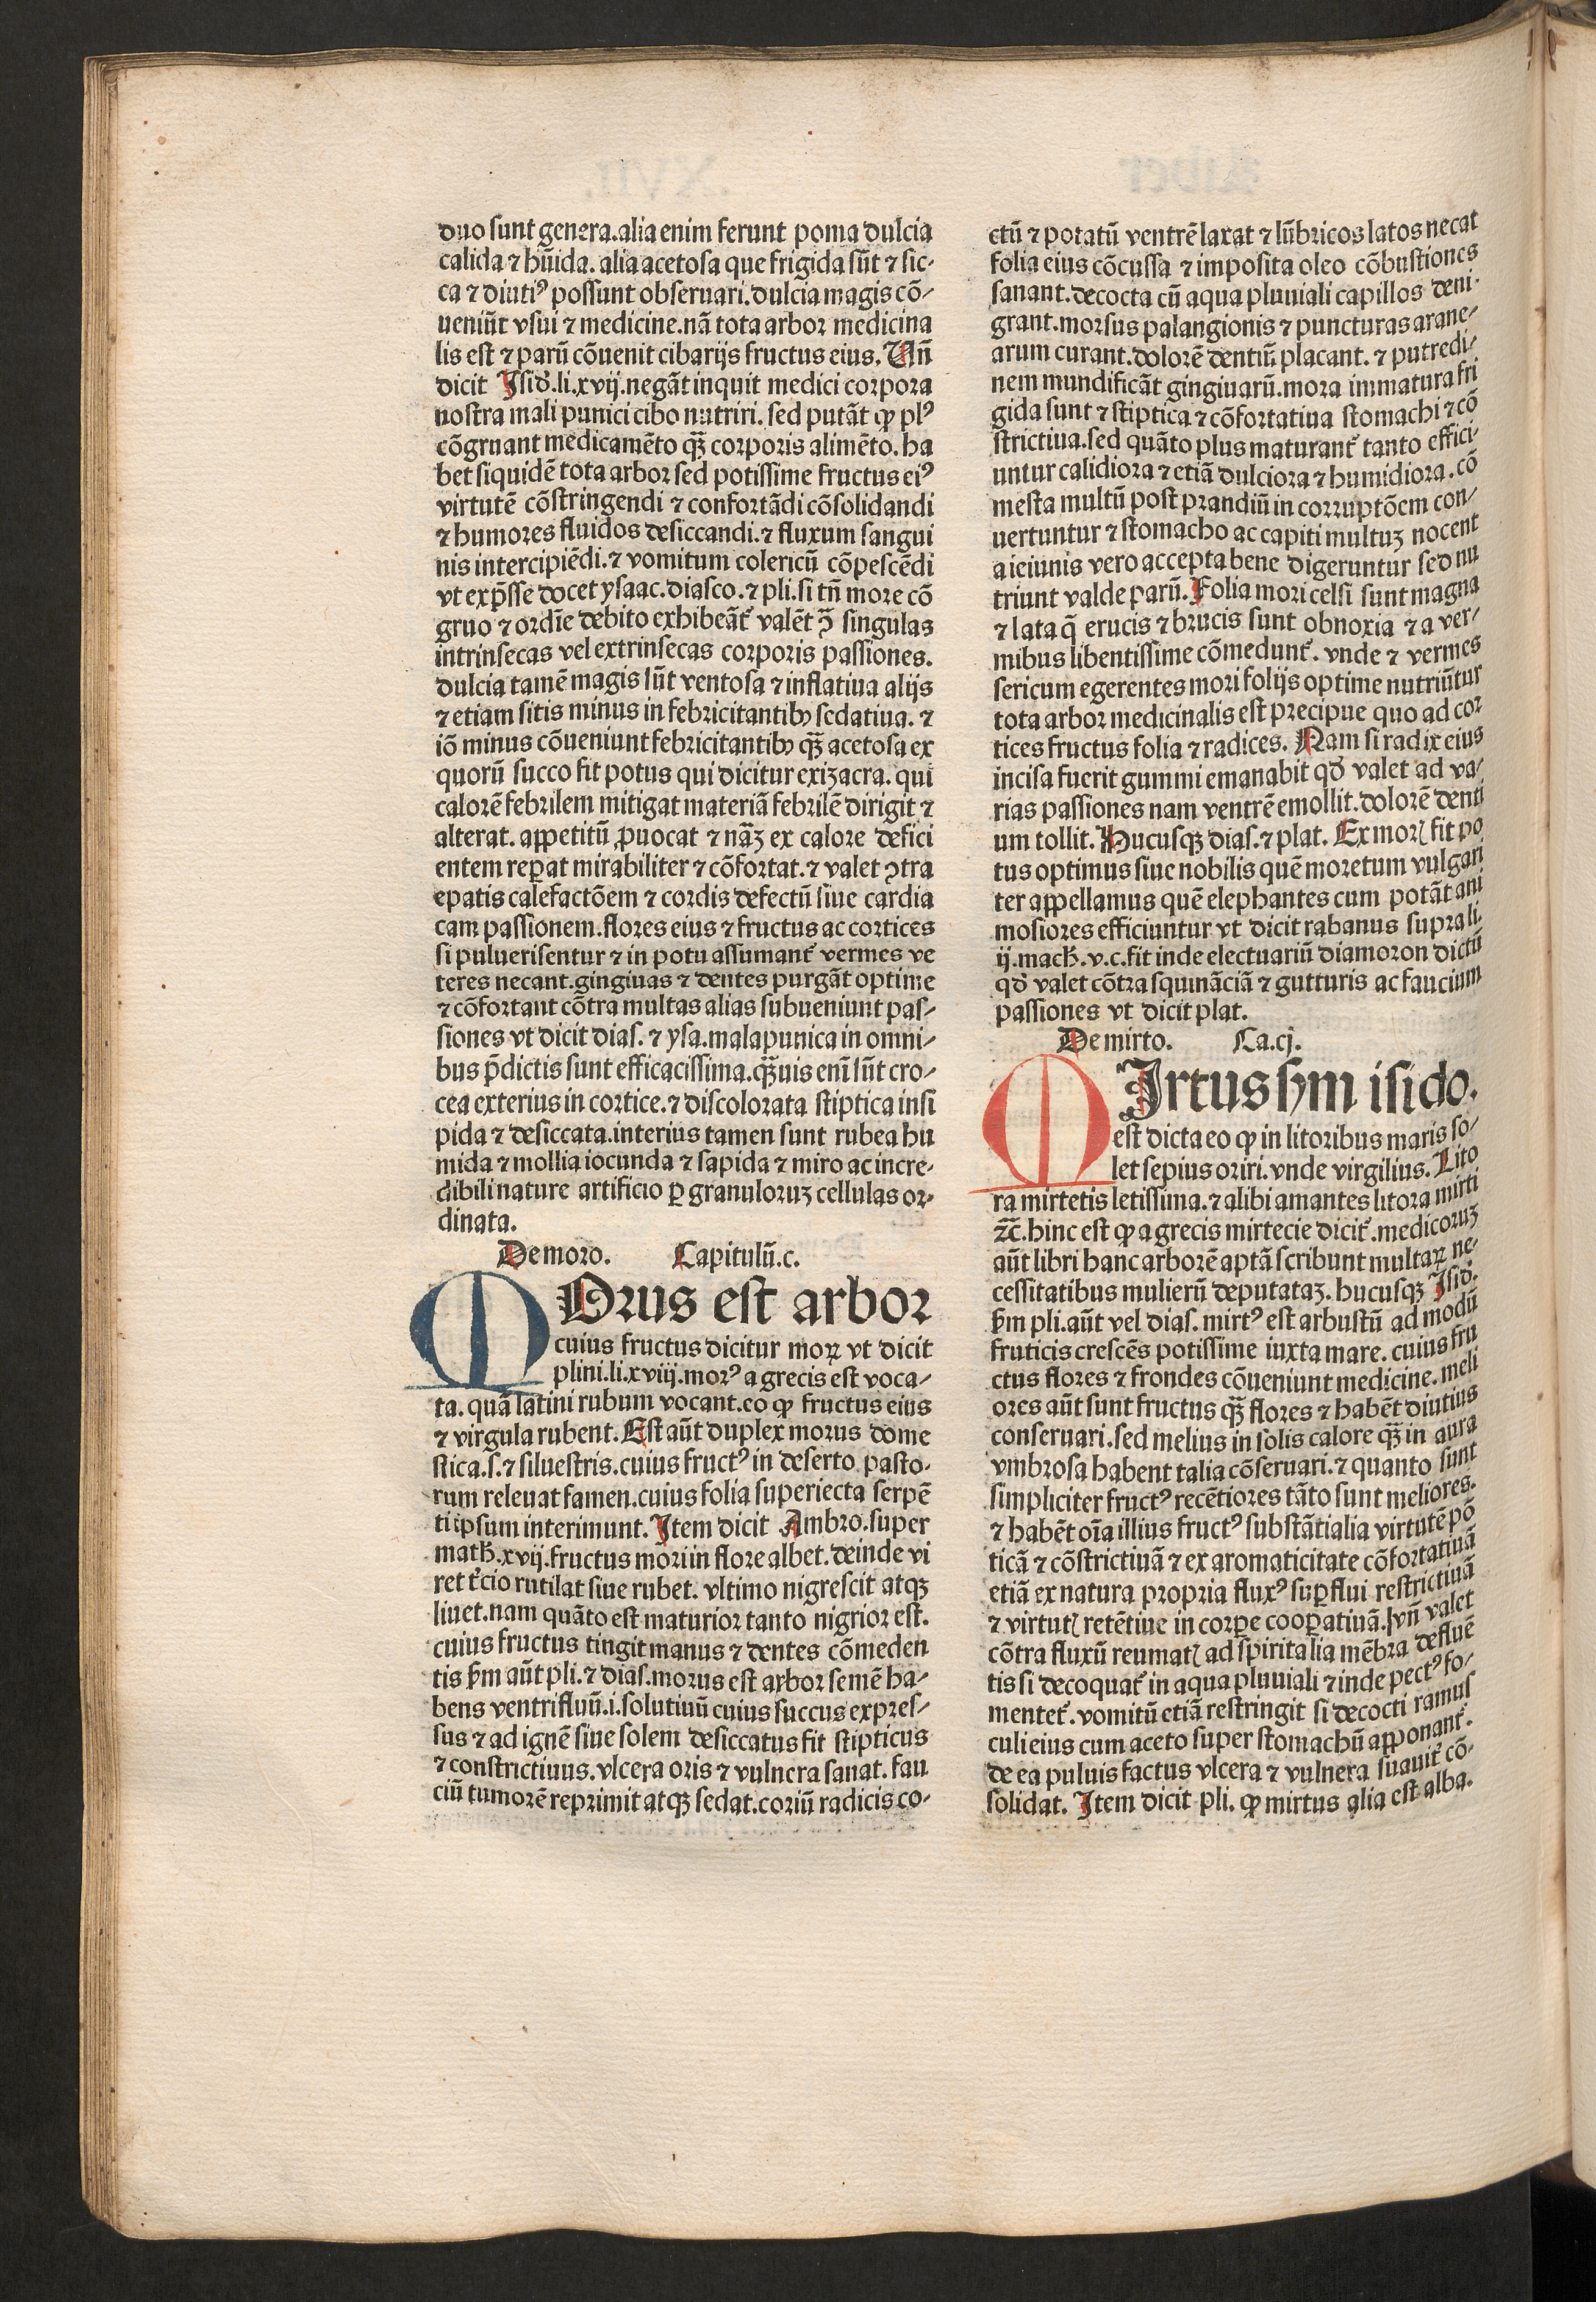 duo sunt genera.alia enim ferunt poma dulcia
calida ⁊ hūida. alia acetosa que frigida sūt ⁊ sic-
ca ⁊ diutiꝰ possunt obseruari.dulcia magis cō-
ueniūt vsui ⁊ medicine.nā tota arbor medicina
lis est ⁊ parū cōuenit cibarijs fructus eius. Vn̄
dicit Isid̄.li.xvij.negāt inquit medici corpora
nostra mali punici cibo nutriri. sed putāt ꝙ plꝰ
cōgruant medicamēto qꝫ̄ corporis alimēto. ha
bet siquidē tota arbor sed potissime fructus eiꝰ
virtutē cōstringendi ⁊ confortādi cōsolidandi
⁊ humores fluidos desiccandi.⁊ fluxum sangui
nis intercipiēdi.⁊ vomitum colericū cōpescēdi
vt exp̄sse docet ysaac.diasco.⁊ pli.si tn̄ more cō
gruo ⁊ ordīe debito exhibeāt᷑ valēt ꝯ̄ singulas
intrinsecas vel extrinsecas corporis passiones.
dulcia tamē magis sūt ventosa ⁊ inflatiua alijs
⁊ etiam sitis minus in febricitantibꝫ sedatiua. ⁊
iō minus cōueniunt febricitantibꝫ qꝫ̄ acetosa ex
quorū succo fit potus qui dicitur exizacra. qui
calorē febrilem mitigat materiā febrilē dirigit ⁊
alterat. appetitū ꝓuocat ⁊ nāꝫ ex calore defici
entem reꝑat mirabiliter ⁊ cōfortat.⁊ valet ꝯtra
epatis calefactōem ⁊ cordis defectū siue cardia
cam passionem.flores eius ⁊ fructus ac cortices
si puluerisentur ⁊ in potu assumant᷑ vermes ve
teres necant.gingiuas ⁊ dentes purgāt optime
⁊ cōfortant cōtra multas alias subueniunt pas-
siones vt dicit dias. ⁊ ysa.mala punica in omni-
bus p̄dictis sunt efficacissima.qꝫ̄uis enī sūt cro-
cea exterius in cortice.⁊ discolorata stiptica insi
pida ⁊ desiccata.interius tamen sunt rubea hu
mida ⁊ mollia iocunda ⁊ sapida ⁊ miro ac incre-
dibili nature artificio ꝑ granuloruꝫ cellulas or-
dinata.
De moro. Capitulū.c.
MOrus est arbor
cuius fructus dicitur moꝝ vt dicit
plini.li.xviij.morꝰ a grecis est voca-
ta. quā latini rubum vocant.eo ꝙ fructus eius
⁊ virgula rubent. Est aūt duplex morus dome
stica.s.⁊ siluestris.cuius fructꝰ in deserto pasto-
rum releuat famen.cuius folia superiecta serpē
ti ipsum interimunt. Item dicit Ambro.super
matħ.xvij.fructus mori in flore albet.deinde vi
ret t᷑cio rutilat siue rubet. vltimo nigrescit atqꝫ
liuet.nam quāto est maturior tanto nigrior est.
cuius fructus tingit manus ⁊ dentes cōmeden
tis ẜm aūt pli.⁊ dias.morus est arbor semē ha-
bens ventrifluū.i.solutiuū cuius succus expres-
sus ⁊ ad ignē siue solem desiccatus fit stipticus
⁊ constrictiuus.vlcera oris ⁊ vulnera sanat. fau
ciū tumorē reprimit atqꝫ sedat.coriū radicis co-
ctū ⁊ potatū ventrē laxat ⁊ lūbricos latos necat
folia eius cōcussa ⁊ imposita oleo cōbustiones
sanant.decocta cū aqua pluuiali capillos deni-
grant.morsus palangionis ⁊ puncturas arane-
arum curant.dolorē dentiū placant. ⁊ putredi-
nem mundificāt gingiuarū.mora immatura fri
gida sunt ⁊ stiptica ⁊ cōfortatiua stomachi ⁊ cō
strictiua.sed quāto plus maturant᷑ tanto effici-
untur calidiora ⁊ etiā dulciora ⁊ humidiora.cō
mesta multū post prandiū in corruptōem con-
uertuntur ⁊ stomacho ac capiti multuꝫ nocent
a ieiunis vero accepta bene digeruntur sed nu
triunt valde parū. Folia mori celsi sunt magna
⁊ lata q̄ erucis ⁊ brucis sunt obnoxia ⁊ a ver-
mibus libentissime cōmedunt᷑. vnde ⁊ vermes
sericum egerentes mori folijs optime nutriūtur
tota arbor medicinalis est precipue quo ad cor
tices fructus folia ⁊ radices. Nam si radix eius
incisa fuerit gummi emanabit qd̄ valet ad va-
rias passiones nam ventrē emollit.dolorē denti
um tollit. Hucusqꝫ dias.⁊ plat. Ex morꝭ fit po
tus optimus siue nobilis quē moretum vulgari
ter appellamus quē elephantes cum potāt ani
mosiores efficiuntur vt dicit rabanus supra li.
ij.macħ.v.c.fit inde electuariū diamoron dictū
qd̄ valet cōtra squināciā ⁊ gutturis ac faucium
passiones vt dicit plat.
De mirto. Ca.cj.
MIrtus ẜm isido.
est dicta eo ꝙ in litoribus maris so-
let sepius oriri.vnde virgilius. Lito
ra mirtetis letissima.⁊ alibi amantes litora mirti
ꝛc̄.hinc est ꝙ a grecis mirtecie dicit᷑.medicoruꝫ
aūt libri hanc arborē aptā scribunt multaꝝ ne-
cessitatibus mulierū deputataꝫ. hucusqꝫ Isid̄.
ẜm pli.aūt vel dias. mirtꝰ est arbustū ad modū
fruticis crescēs potissime iuxta mare. cuius fru
ctus flores ⁊ frondes cōueniunt medicine. meli
ores aūt sunt fructus qꝫ̄ flores ⁊ habēt diutius
conseruari.sed melius in solis calore qꝫ̄ in aura
vmbrosa habent talia cōseruari.⁊ quanto sunt
simpliciter fructꝰ recētiores tāto sunt meliores.
⁊ habēt oīa illius fructꝰ substātialia virtutē pō
ticā ⁊ cōstrictiuā ⁊ ex aromaticitate cōfortatiuā
etiā ex natura propria fluxꝰ suꝑflui restrictiuā
⁊ virtutꝭ retētiue in corꝑe cooꝑatiuā.vn̄ valet
cōtra fluxū reumatꝭ ad spiritalia mēbra defluē
tis si decoquat᷑ in aqua pluuiali ⁊ inde pectꝰ fo-
mentet᷑.vomitū etiā restringit si decocti ramus
culi eius cum aceto super stomachū apponant᷑.
de ea puluis factus vlcera ⁊ vulnera suauit᷑ cō-
solidat. Item dicit pli. ꝙ mirtus alia est alba.